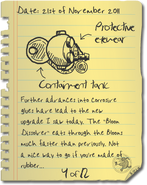 Date: 21st of November 2011
Protective
exterior
Containment tank
Further advances into corrosive
gloves have lead to the new
upgrade I saw today. The 'Bloom
Dissolver' eats through the Blooms
much faster than previously. Not
a nice way to go if you're made of
rubber...
4 of 12